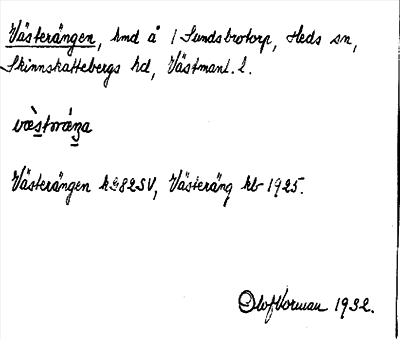 Västerängen, lmd å 1 Sundsbrotorp, Heds sn,
Skinnskattebergs hd, Västmanl. l.
væ̀stəræ̀ŋa
Västerängen k382SV, Västeräng kb 1925.
Olof Vorman 1932.